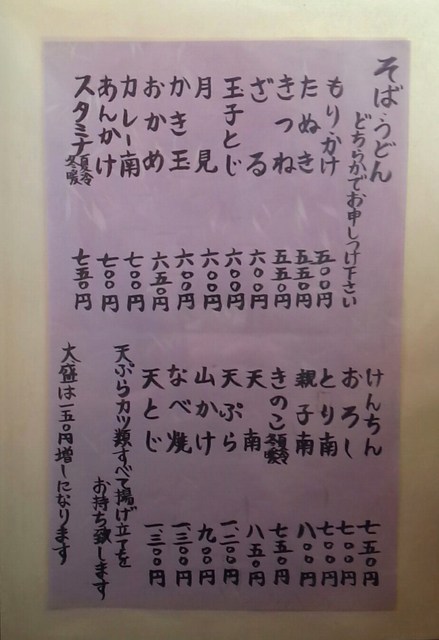 そば・うどん
どちらかでお申しつけ下さい
もり・かけ 五〇〇円
たぬき 五五〇円
きつね 五五〇円
ざる 六〇〇円
玉子とじ 六〇〇円
月見 六〇〇円
かき玉 六〇〇円
おかめ 六五〇円
カレー南 七〇〇円
あんかけ 七〇〇円
スタミナ 夏冷 冬暖 七五〇円
けんちん 七五〇円
おろし 七〇〇円
とり南 七〇〇円
親子南 八〇〇円
きのこ 冬暖 七五〇円
天南 八五〇円
天ぷら 一二〇〇円
山かけ 九〇〇円
なべ焼 一三〇〇円
天とじ 一三〇〇円
天ぷらカツ類すべて揚げ立てを
お持ち致します
大盛は一五〇円増しになります